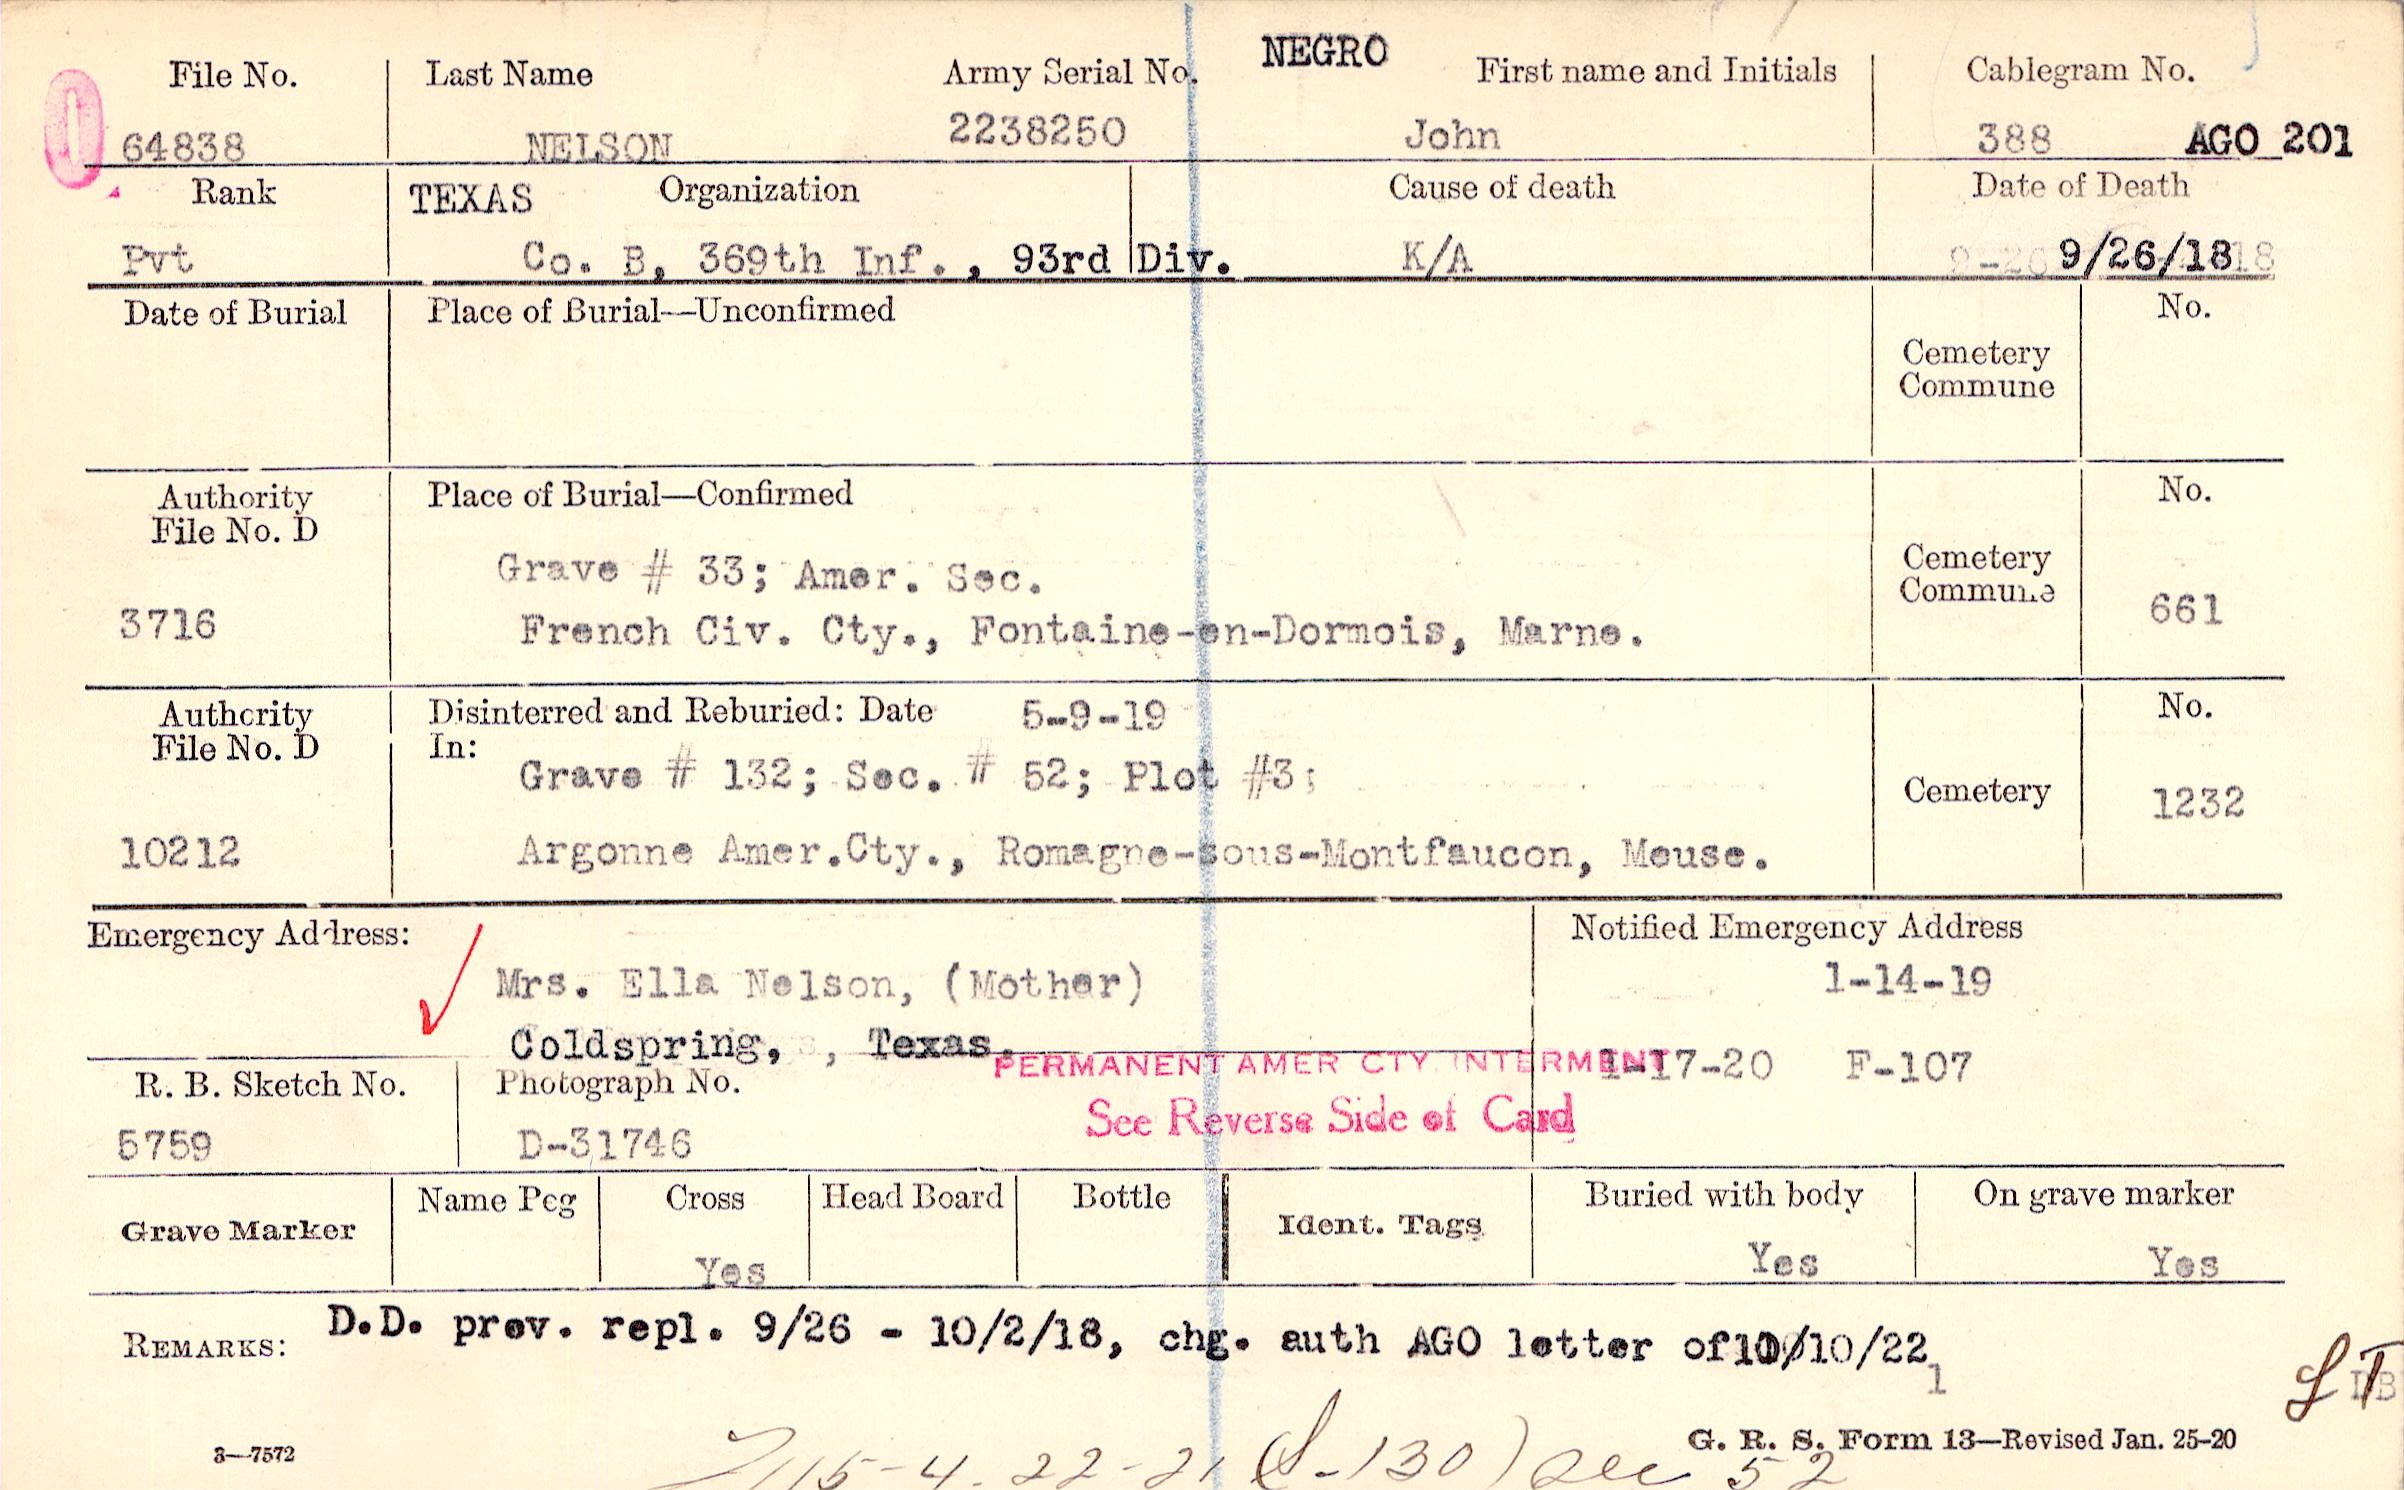 NEGRO
File No. Last Name Army Serial No. First name and Initials Cablegram No.
64838 NELSON 2238250 John 388 AGO 201
Rank TEXAS Organization Cause of death Date of Death
Pvt Co. B, 369th Inf., 93rd Div. K/A 9/26/18
Date of Burial Place of Burial—Unconfirmed No.
Cemetery
Commune
Authority Place of Burial—Confirmed No.
File No. D
Grave # 33; Amer. Sec. Cemetery
Commune
3716 French Civ. Cty., Fontaine-en-Dormois, Marne. 661
Authority Disinterred and Reburied: Date 5-9-19 No.
File No. D In:
Grave # 132; Sec. # 52; Plot #3; Cemetery 1232
10212 Argonne Amer.Cty., Romagne-sous-Montfaucon, Meuse.
Emergency Address: Notified Emergency Address
Mrs. Ella Nelson, (Mother) 1-14-19
Coldspring, , Texas.
PERMANENT AMER CTY INTERMENT 1-17-20 F-107
R. B. Sketch No. Photograph No.
See Reverse Side of Card
5759 D-31746
Grave Marker Name Peg Cross Head Board Bottle Ident. Tags Buried with body On grave marker
Yes Yes Yes
REMARKS: D.D. prev. repl. 9/26 - 10/2/18, chg. auth AGO letter of 10/10/22
1
3—7572 G. R. S. Form 13—Revised Jan. 25-20
115-4-22-21 (S-130) Sec 52